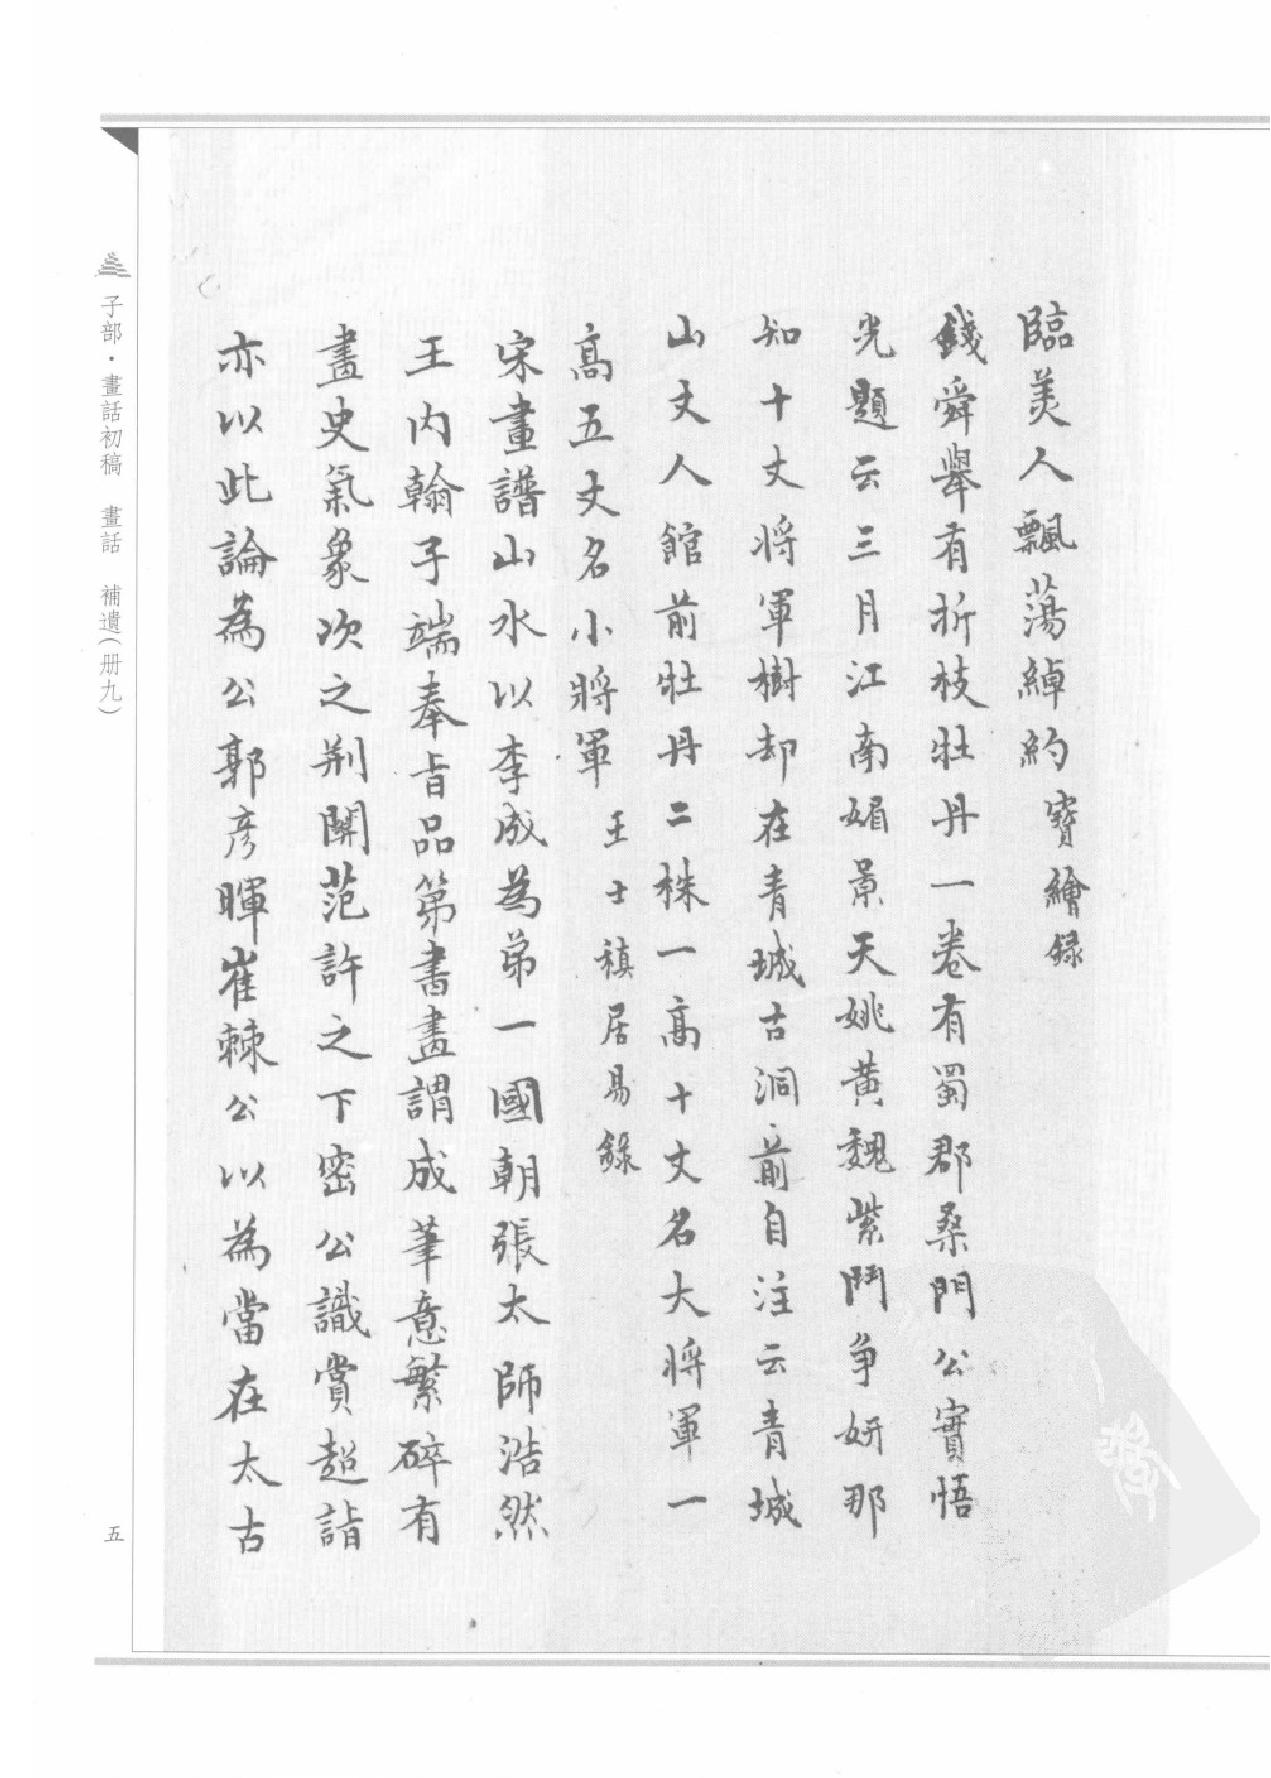 臨美人飄蕩綽約寶繪録
錢舜舉有折枝牡丹一卷有蜀郡桑門公實悟
光題云三月江南媚景天姚黄魏紫鬥争妍那
知十丈將軍樹却在青城古洞前自注云青城
山丈人館前牡丹二株一高十丈名大將軍一
高五丈名小將軍王士稹居易錄
宋畫譜山水以李成為弟一國朝張太師浩然
王内翰子端奉旨品第書畫謂成筆意繁碎有
畫史氣象次之荆關范許之下密公識賞超詣
亦以此論為公郭彦暉崔棘公以為當在太古
子部·畫話初稿 畫話 補遺(册九)
五